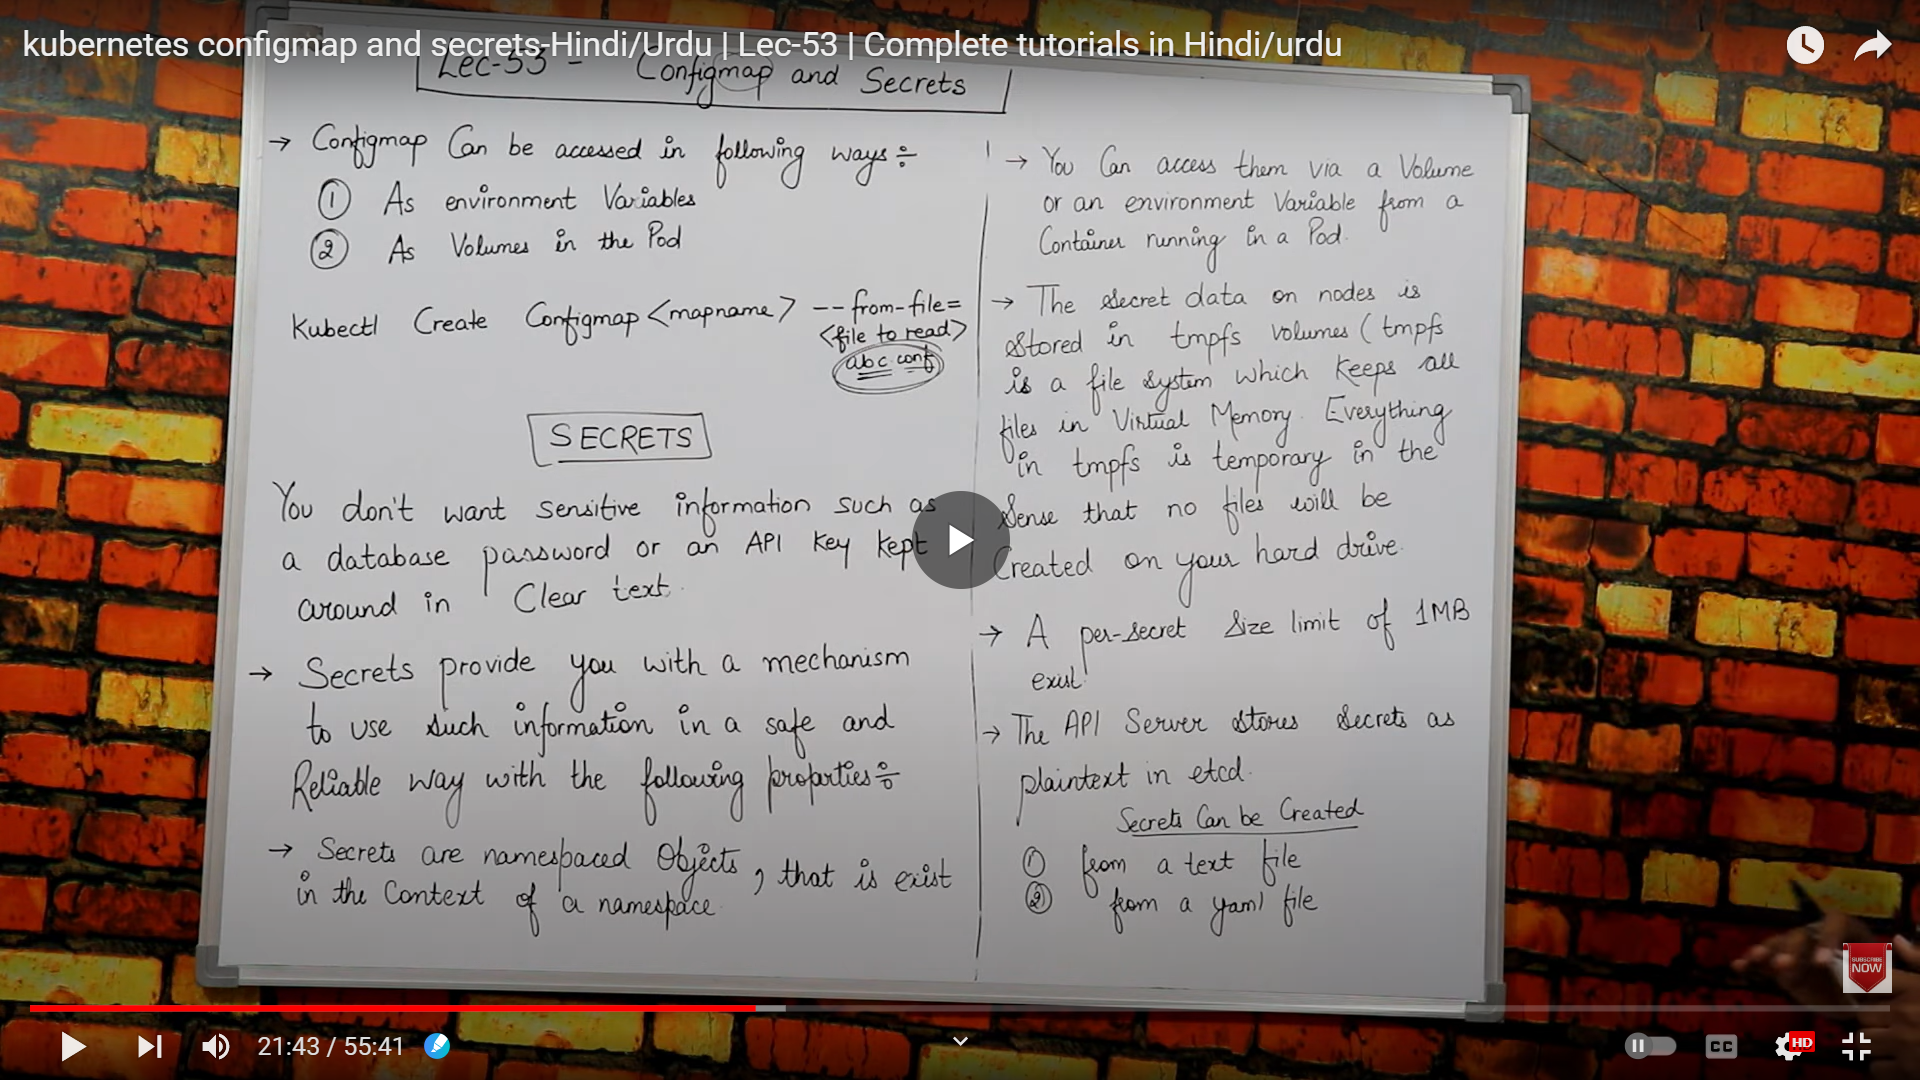 kubernetes configmap and secrets-Hindi/Urdu | Lec-53 | Complete tutorials in Hindi/urdu
Lec-53 - Configmap and Secrets
→ Configmap Can be accessed in following ways÷
① As environment Variables
② As Volumes in the Pod
Kubectl Create Configmap <mapname> --from-file=
<file to read>
abc.conf
SECRETS
You don't want sensitive information such as
a database password or an API Key kept
around in Clear text.
→ Secrets provide you with a mechanism
to use such information in a safe and
Reliable way with the following properties÷
→ Secrets are namespaced Objects, that is exist
in the Context of a namespace
→ You Can access them via a Volume
or an environment Variable from a
Container running in a Pod.
→ The secret data on nodes is
stored in tmpfs volumes (tmpfs
is a file system which keeps all
files in Virtual Memory. Everything
in tmpfs is temporary in the
sense that no files will be
Created on your hard drive.
→ A per-secret size limit of 1MB
exist
→ The API Server stores secrets as
plaintext in etcd.
Secrets Can be Created
① from a text file
② from a yaml file
SUBSCRIBE
NOW
21:43 / 55:41
CC
HD